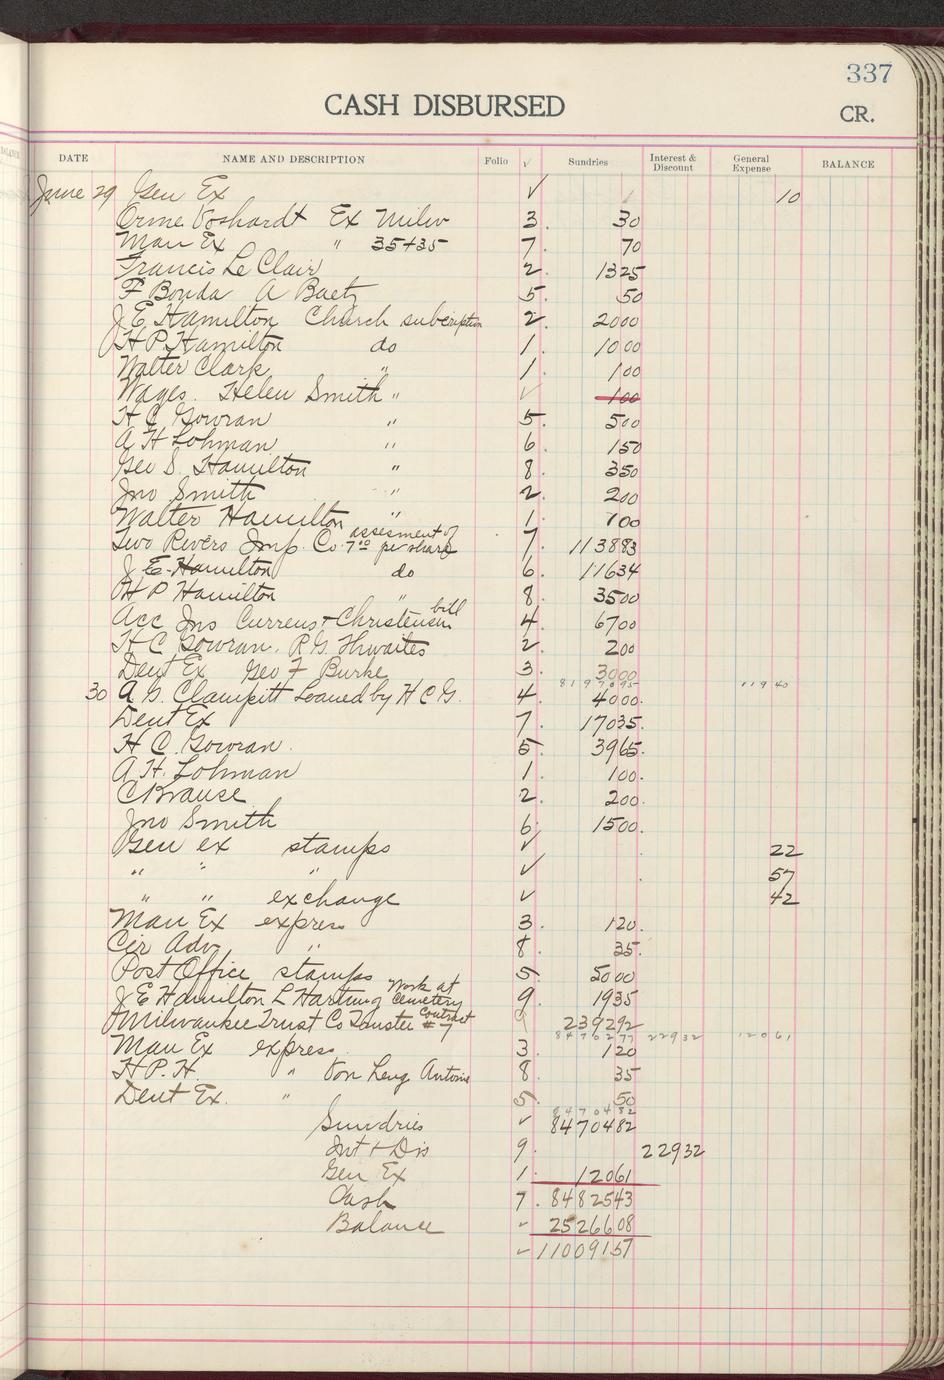 337
CASH DISBURSED
CR.
DATE NAME AND DESCRIPTION Folio √ Sundries Interest & Discount General Expense BALANCE
June 29 Gen Ex √ 10
Orme Voshardt Ex Milw 3. 30
Man Ex " 35+35 7. 70
Francis Le Clair 2. 1325
F Bonda A Baetz 5. 50
J E. Hamilton Church subcription 2. 2000
H P. Hamilton do 1. 1000
Walter Clark " 1. 100
Wages. Helen Smith " √ 100
H C Gowran " 5. 500
A H Lohman " 6. 150
Geo S. Hamilton " 8. 350
Jno Smith " 2. 200
Walter Hamilton " 1. 100
Two Rivers Imp. Co. assesment of 7.00 per share 7. 113883
J E Hamilton do 6. 11634
H P Hamilton " 8. 3500
Acc Ins Currens + Christensen bill 4. 6700
H C Gowran. R. G. Thwaites 2. 200
Dent Ex Geo F Burke 3. 3000
81970 95 119 40
30 A. G. Clampitt Loaned by H C G. 4. 4000.
Dent Ex 7. 17035.
H C. Gowran. 5. 3965.
A. H. Lohman 1. 100.
C Krause 2. 200.
Jno Smith 6. 1500.
Gen ex stamps √ 22
" " " √ 57
" " exchange √ 42
Man Ex express 3. 120.
Cir Adv " 8. 35.
Post Office stamps 5. 5000
J E Hamilton L Hartung Work at Cemetery 9. 1935
Milwaukee Trust Co Trustee Contract # 7 9 239292
84702 77 229 32 120 61
Man Ex express 3. 120
H. P. H. " Von Leng Antoine 8. 35
Dent Ex. " 5. 50
84704 82
Sundries √ 8470482
Int + Dis 9. 22932
Gen Ex 1. 12061
Cash 7. 8482543
Balance √ 2526608
√ 11009157